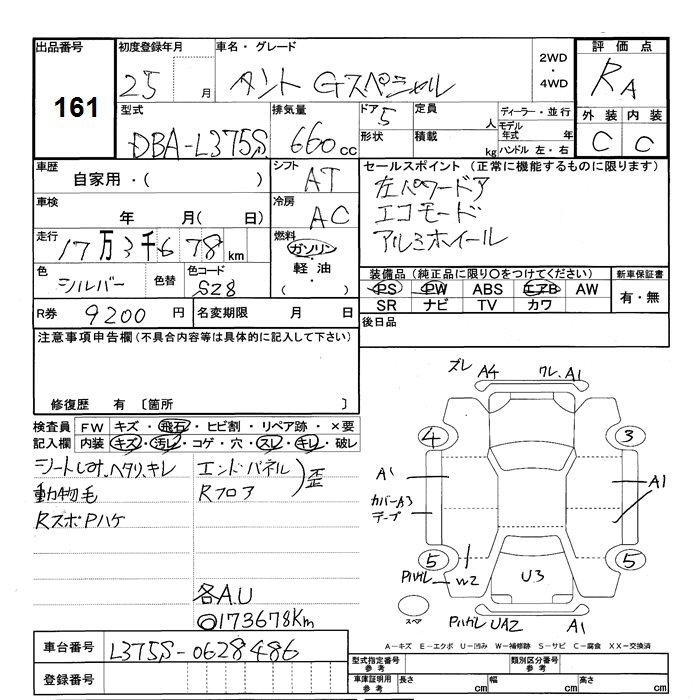 出品番号
161
初度登録年月
25 月
車名・グレード
タント Gスペシャル
2WD
・
4WD
評価点
RA
外装 内装
C C
型式
DBA-L375S
排気量
660 cc
ドア 5
形状
定員 人
積載 kg
ディーラー・並行
モデル年式 年
ハンドル 左・右
車歴
自家用・( )
シフト
AT
車検
年 月( 日)
冷房
AC
走行
17万3千678 km
燃料
ガソリン
・
軽油
・
( )
色
シルバー
色替
色コード
S28
R券 9200 円
名変期限 月 日
セールスポイント(正常に機能するものに限ります)
左パワードア
エコモード
アルミホイール
装備品(純正品に限り○をつけてください)
PS PW ABS エアB AW
SR ナビ TV カワ
新車保証書
有・無
後日品
注意事項申告欄(不具合内容等は具体的に記入して下さい)
修復歴 有 〔箇所 〕
検査員記入欄
FW キズ・飛石・ヒビ割・リペア跡・×要
内装 キズ・汚レ・コゲ・穴・スレ・キレ・破レ
シートしみ、ヘタリ、キレ
動物毛
RスポPハケ
エンドパネル
Rフロア
歪
各A.U
○173678Km
ズレ A4 ワレ、A1
4 3
A1 A1
カバーA3
テープ
5 5
Pハガレ W2
U3
スペア
Pハガレ UA2 A1
A-キズ E-エクボ U-凹み W-補修跡 S-サビ C-腐食 XX-交換済
車台番号 L375S-0628486
登録番号
型式指定番号
参考
類別区分番号
参考
車庫証明用
参考
長さ cm 幅 cm 高さ cm